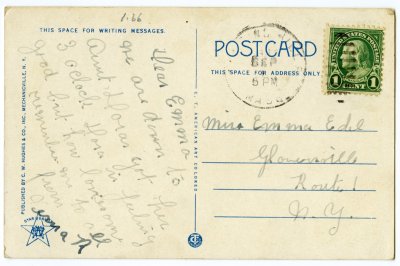 1.66
THIS SPACE FOR WRITING MESSAGES.
Dear Emma
we are down to
Aunt Floras got here
3 oclock Flora is feeling
good but how lonesome
remember me to all
from
PUBLISHED BY C. W. HUGHES & CO., INC., MECHANICVILLE, N. Y.
C. T. AMERICAN ART COLORED
POST CARD
THIS SPACE FOR ADDRESS ONLY
SEP
5 PM
UNITED STATES POSTAGE
1 CENT 1
Miss Emma Edel
Gloversville
Route 1
N.Y.